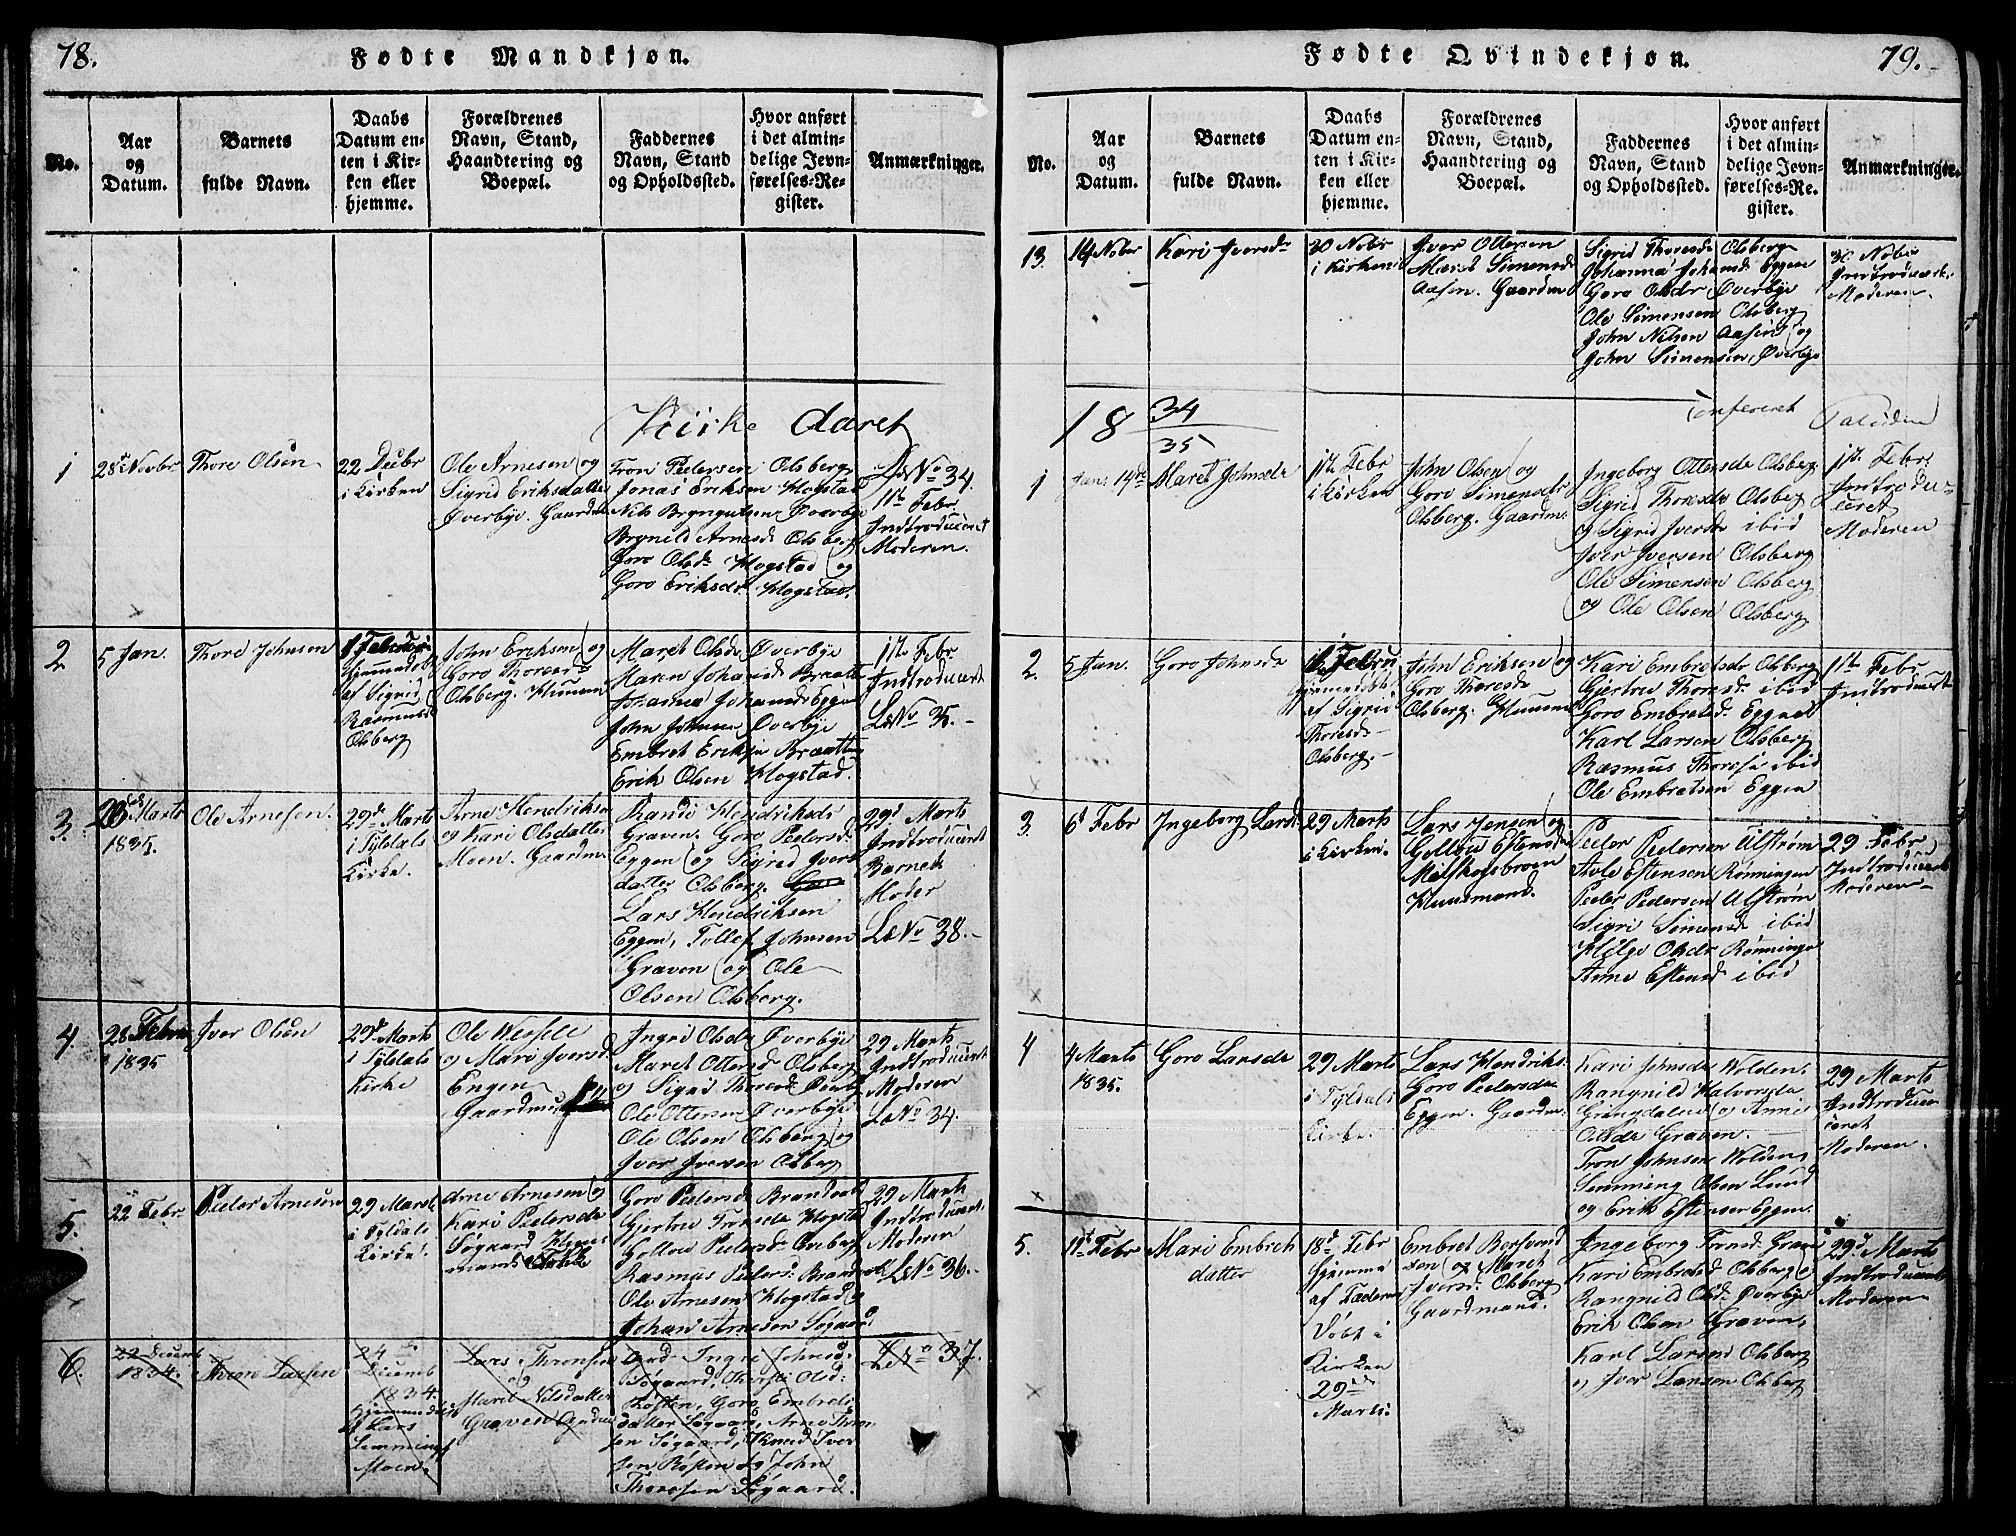 78.
Fødte Mandkjøn.
No.
Aar
og
Datum.
Barnets
fulde Navn.
Daabs
Datum en-
ten i Kir-
ken eller
hjemme.
Forældrenes
Navn, Stand,
Haandtering og
Boepæl.
Faddernes
Navn, Stand
og Opholdssted.
Hvor anført
i det almin-
delige Jevn-
førelses-Re-
gister.
Anmærkninger.
Kirke Aaret
1
28 Novbr
Thore Olsen
22 Decbr
i Kirken
Ole Arnesen og
Sigrid Eriksdatter
Øverbye. Gaardm
Tron Pedersen Olsberg
Jonas Eriksen Hogstad
Nils Bryngelsen Øverbye
Brynild Arnesd Olsberg
Goro Olsd Hogstad og
Goro Eriksdr Hogstad.
No 34.
11te Febr
Indtroduceret
Moderen.
2
5 Jan.
Thore Johnsen
Hjemmedøbt
af Sigrid
Rasmusd
Olsberg
John Eriksen og
Goro Thoresd
Olsberg. Huusm
Maret Olsd Øverbye
Maren Johansd Braatt
Johanna Johansd Eggen
John Johnsen Øverbye
Embret Eriksen Braatten
Erik Olsen Hogstad.
1te Febr
Indtroduceret
No 35.
3.
Marts
1835.
Ole Arnesen.
29d Marts
i Tyldals
Kirke.
Arne Hendriksen
og Kari Olsdatter
Moen. Gaardm.
Randi Hendriksd
Graven. Goro Pedersd
Eggen og Sigrid Ivers
datter Olsberg.
Lars Hendriksen
Eggen, Tollef Johnsen
Graven og Ole
Olsen Olsberg.
29d Marts
Indtroduceret
Barnets
Moder
No 38.
4.
28 Febr
1835
Iver Olsen
29d Marts
i Tyldals
Kirke
Ole Wessel
og Mari Iversd
Engen
Gaardm
Ingri Olsdr Øverbye
Maret Ottersd Olsberg
og Sigrid Thoresd Øverby
Ole Ottersen Øverbye
Ole Olsen Olsberg og
Iver Iversen Olsberg
29 Marts
Indtroduceret
Moderen
No 34.
5.
22 Febr
Peder Arnesen
29 Marts
i Tyldals
Kirke.
Arne Arnesen og
Kari Pedersdr
Søgaard Huus
mand
Goro Pedersd Brandvold
Gjertru Tronsdr Hogstad
Gollou Pedersd
Rasmus Peders.
Ole Arnesen Hogstad og
Johan Arnesen Søgaard
29 Marts
Indtroduceret
Moderen
No 36.
6.
22 Decemb
1834.
Thore Larsen
24
Decemb
1834.
Hjemmedøbt
af Lars
Semmingf
Moen.
Lars Thronsen
og
Marit Nilsdatter
Graven
Ingr. Johnsd.
Søgaard, Olsd.
Røsten, Goro Embrets
datter Søgaard, Arne Thron
sen Søgaard, Knud Iver
sen Røsten og John
Thoresen Søgaard.
No 37.
79.
Fødte Qvindekjøn.
No.
Aar
og
Datum.
Barnets
fulde Navn.
Daabs
Datum en-
ten i Kir-
ken eller
hjemme.
Forældrenes
Navn, Stand,
Haandtering og
Boepæl.
Faddernes
Navn, Stand
og Opholdssted.
Hvor anført
i det almin-
delige Jevn-
førelses-Re-
gister.
Anmærkninger.
13.
14 Nobr
Kari Iversdr
30 Nobr
i Kirken
Iver Ottersen
Maret Simensdr
Aasen. Gaardm
Sigrid Thoresdr Olsberg
Johanna Johansd Eggen
Goro Olsdr Øverbye
Ole Simensen Olsberg
John Nilsen Aasen og
John Simensen Øverbye
30 Nobr
Moderen.
18 34/35
Confereret
1
Jan: 14de
Maret Johnsdr
1te Febr
i Kirken
John Olsen og
Goro Simensdr
Olsberg. Gaardm.
Ingeborg Ottersdr Olsberg
Sigrid Thoresdr Olsberg
og Sigrid Iversdr ibid
Iver Iversen Olsberg
Ole Simensen Olsberg
og Ole Olsen Olsberg
1te Febr
Introdu-
ceret
Moderen
2.
5 Jan.
Goro Johnsdr
Febru
Hjemmedøbt
af Sigrid
Thoresd
Olsberg.
John Eriksen og
Goro Thoresdr
Olsberg. Huusm
Kari Embretsdr Olsberg
Gjertru Thoresd. ibid
Goro Embretsd. Eggen
Karl Larsen Olsberg
Rasmus Thorese ibid
Ole Embretsen Eggen
1te Febr
Indtroduceret
3
6d Febr
Ingeborg Larsd
29 Marts
i Kirken.
Lars Jensen og
Gollou Estensdr
Huusmand.
Peder Pedersen Ulstrøm
Avle Estensen Rønningen
Peder Pedersen Ulstrøm
Sigri Simensd ibid
Helge Olsdr Rønninge
Anne Estensd ibid
29 Febr
Indtroduceret
Moderen
4
4 Marts
1835.
Goro Larsdr
29 Marts
i Tyldals
Kirke.
Lars Hendriks.
Goro Pedersdr
Eggen. Gaardm.
Kari Johnsdr Wolden,
Rangnild Halvorsdr
Gringdalen og Anne
Olsdr Graven.
Tron Johnsen Wolden
Semming Olsen Lund
og Erik Estensen Eggen.
29 Marts
Indtrodu
ceret
Moderen.
5.
Febr
Mari Embret
datter
18d Febr
hjemme
af Faderen
Døbt i
Kirken
29de
Marts.
Embret Bersvend
sen og Maret
Iversd. Olsberg
Gaardmand.
Ingeborg Tronsd. Graven
Kari Embretsd Olsberg
Rangnild Olsd. Øverbye
Erik Olsen Graven,
Karl Larsen Olsberg
og Iver Larsen Olsberg
29d Marts
Indtroduceret
Moderen